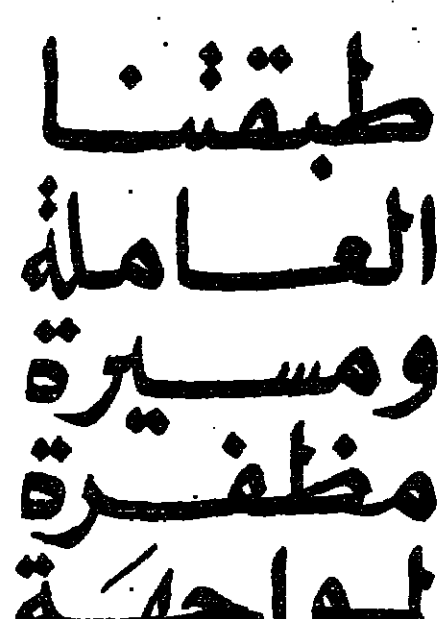 طبقتنا
العاملة
ومسيرة
مظفرة
لمواجهَة